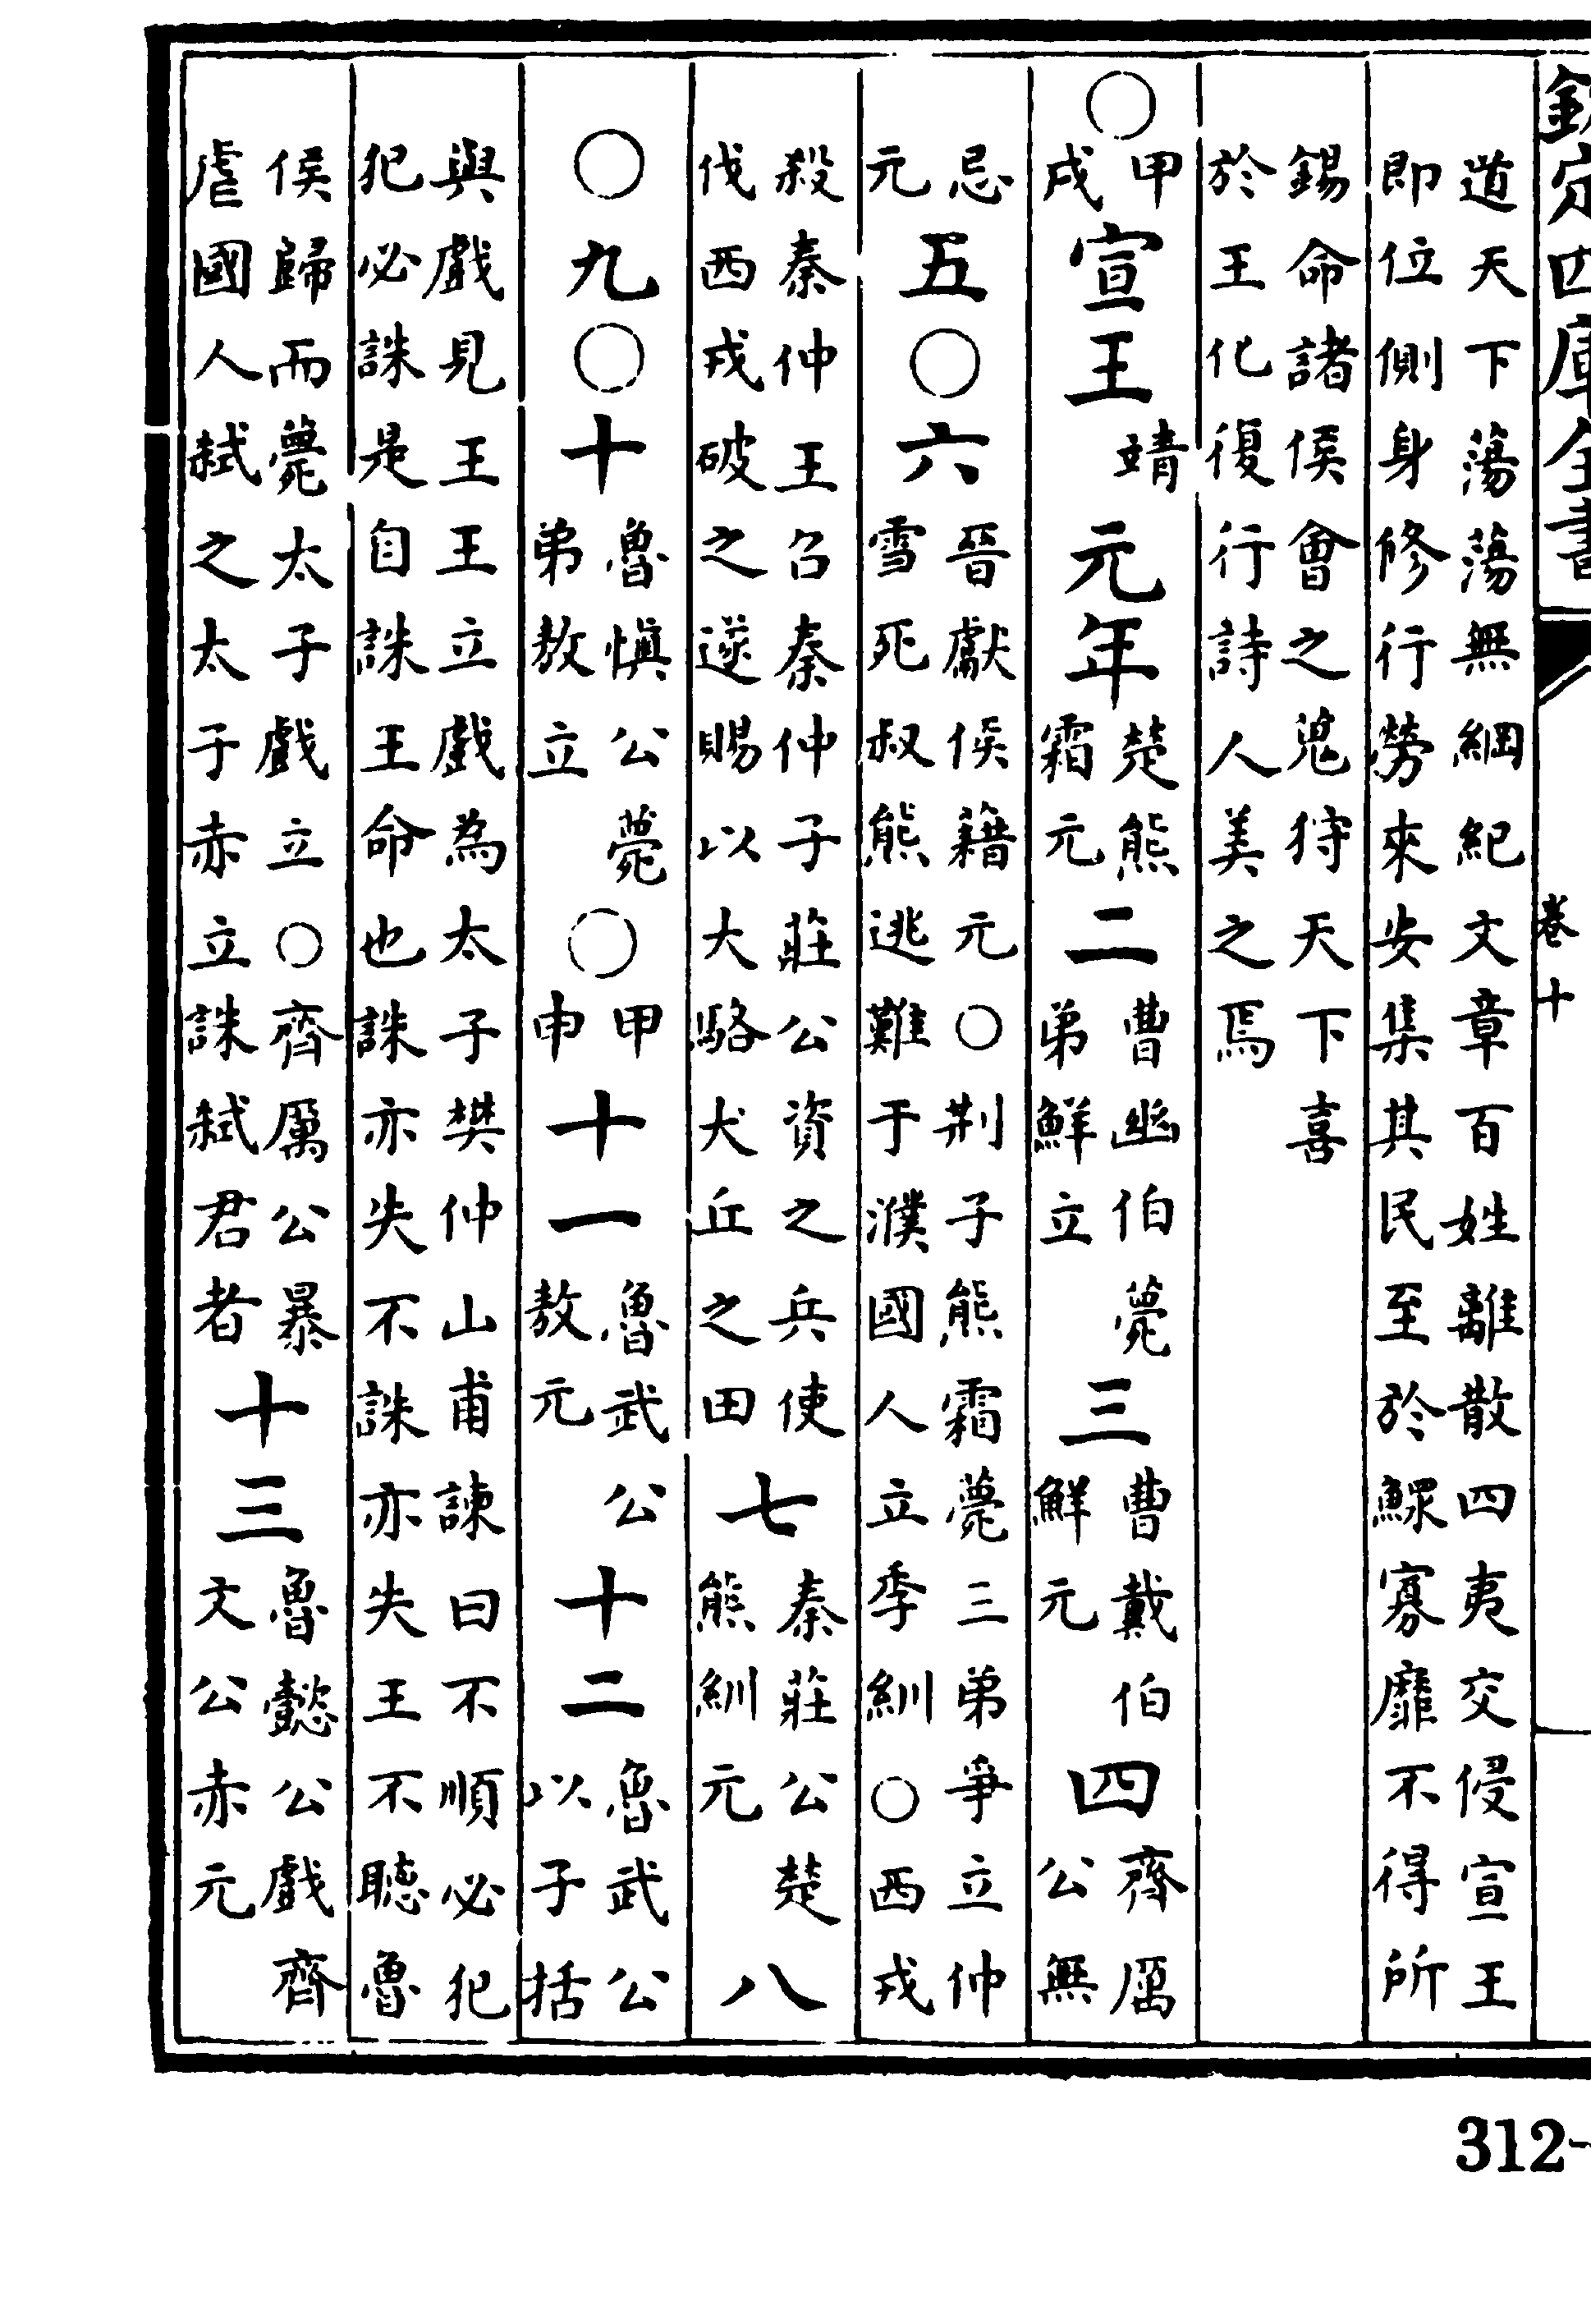 欽定四庫全書
卷十
道天下蕩蕩無綱紀文章百姓離散四夷交侵宣王
即位側身修行勞來安集其民至於鰥寡靡不得所
錫命諸侯會之蒐狩天下喜
於王化復行詩人美之焉
○甲戌宣王靖元年楚熊霜元二曹幽伯薨弟鮮立三曹戴伯鮮元四齊厲公無
忌元五○六晉獻侯籍元○荆子熊霜薨三弟爭立仲雪死叔熊逃難于濮國人立季紃○西戎
殺秦仲王召秦仲子莊公資之兵使伐西戎破之遂賜以大駱犬丘之田七秦莊公楚熊紃元八
○九○十魯慎公薨弟敖立○甲申十一魯武公敖元十二魯武公以子括
與戲見王王立戲為太子樊仲山甫諫曰不順必犯
犯必誅是自誅王命也誅亦失不誅亦失王不聽魯
侯歸而薨太子戲立○齊厲公暴虐國人弒之太子赤立誅弒君者十三魯懿公戲齊文公赤元
312-